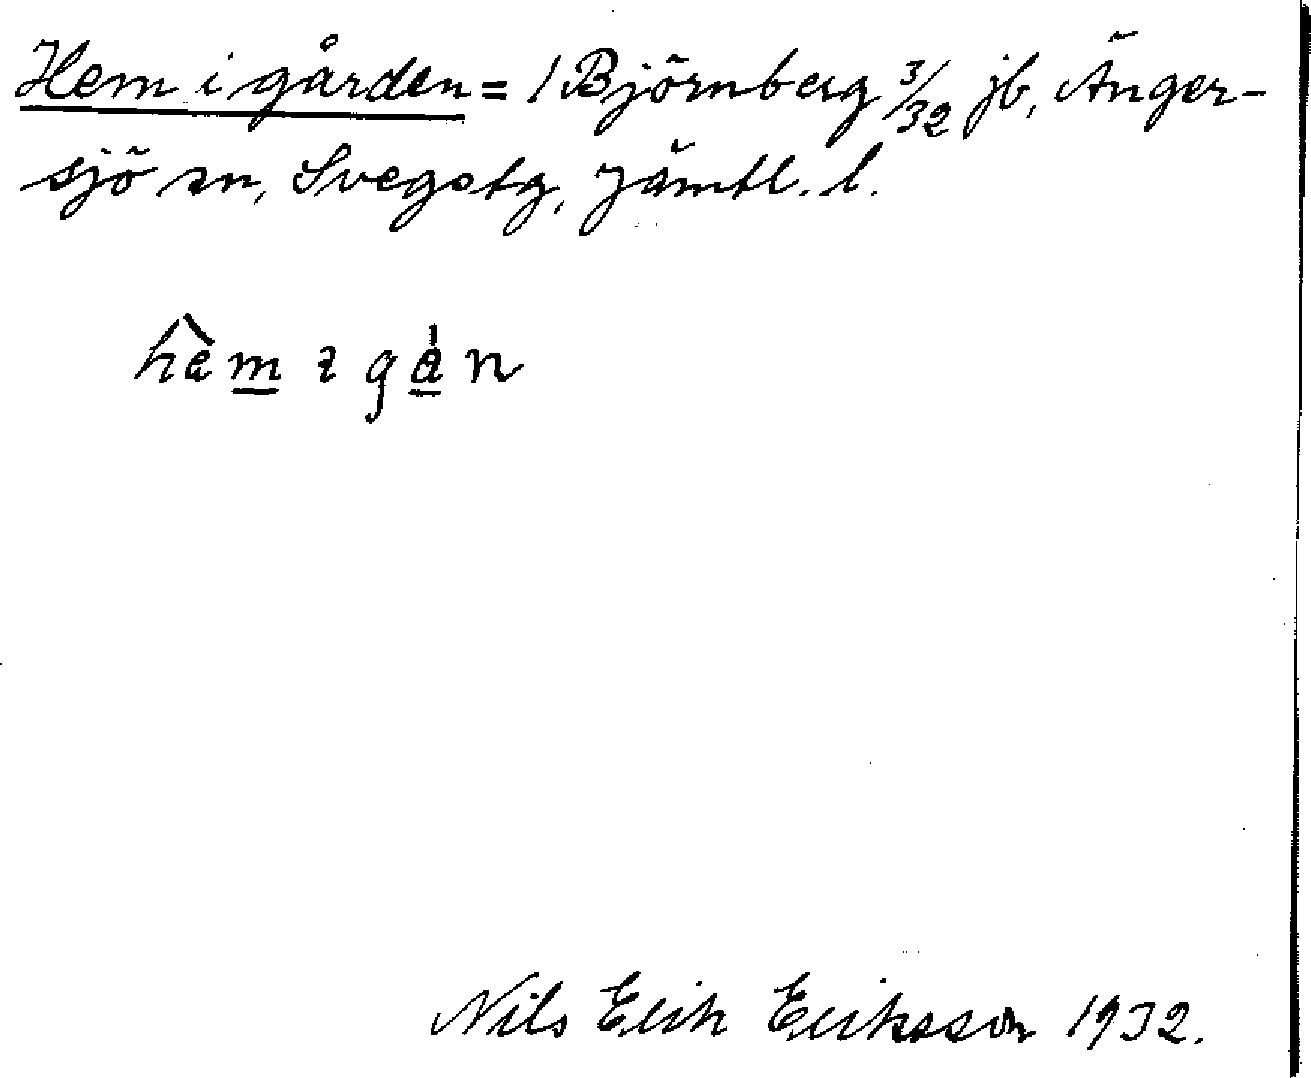 Hem i gården = 1 Björnberg 3/32 jb, Änger-
sjö sn, Svegstg, Jämtl. l.
hèm ı gån
Nils Erik Eriksson 1932.